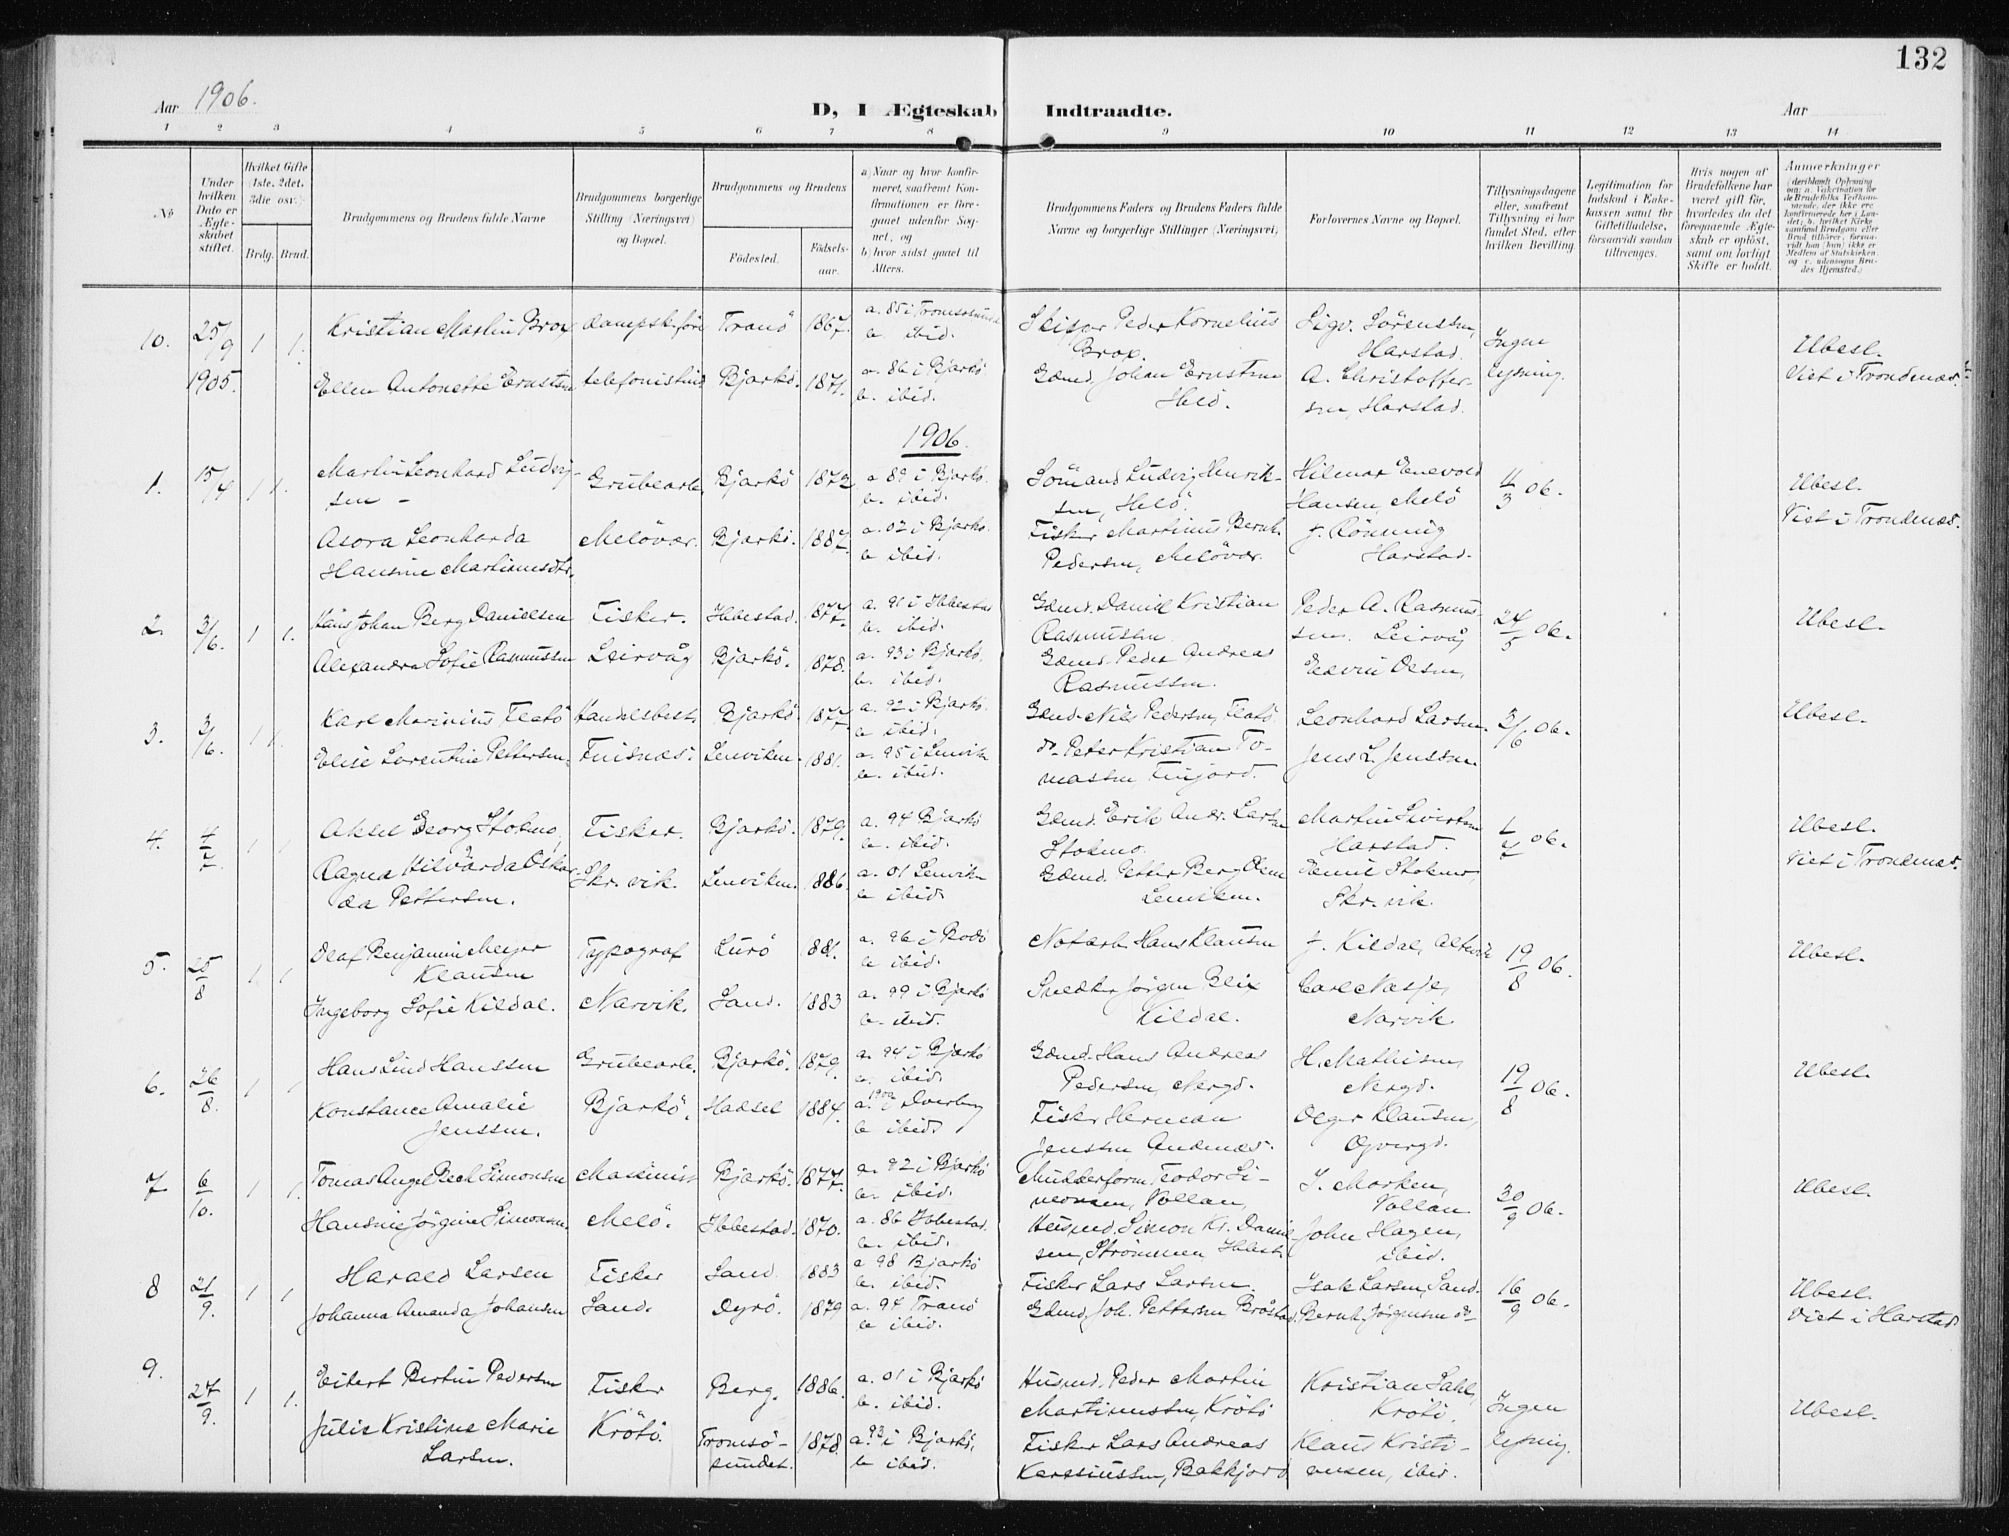 132
Aar 1906.
D, I Ægteskab Indtraadte.
Aar
1 2 3 4 5 6 7 8 9 10 11 12 13 14
No
Under hvilken Dato er Ægteskabet stiftet.
Hvilket Gifte (1ste, 2det, 3die osv.)
Brdg. Brud.
Brudgommens og Brudens fulde Navne
Brudgommens borgerlige Stilling (Næringsvei) og Bopæl.
Brudgommens og Brudens
Fødested.
Fødsels-aar.
a) Naar og hvor konfirmeret, saafremt Konfirmationen er foregaaet udenfor Sognet, og
b) hvor sidst gaaet til Alters.
Brudgommens Faders og Brudens Faders fulde Navne og borgerlige Stillinger (Næringsvei)
Forlovernes Navne og Bopæl.
Tillysningsdagene eller, saafremt Tillysning ei har fundet Sted, efter hvilken Bevilling.
Legitimation for Indskud i Enkekassen samt for Giftetilladelse, forsaavidt saadan tiltrænges.
Hvis nogen af Brudefolkene har været gift før, hvorledes da det foregaaende Ægteskab er opløst, samt om lovligt Skifte er holdt.
Anmærkninger
10. 25/9 1905. 1 1. Kristian Martin Brox dampsk.före Tranö 1867. a. 85 i Tromsösund b. ibid. Skipper Peder Kornelius Brox. Sigv. Sörenssen, Harstad. Ingen lysning. Ubesl.
Ellen Antonette Ernstsen telefonistind Bjarkö. 1871. a. 86 i Bjarkö b. ibid. Gdmd. Johan Ernstsen A. Christoffersen, Harstad. Viet i Trondenæs.
1906.
1. 15/4 1 1. Martin Leonhard Ludvigsen - Grubearb. Bjarkö 1872 a 89 i Bjarkö. b. ibid. Sömand Ludvig Henriksen, Helö. Hilmar Enevold Hansen, Melö 4/3 06. Ubesl.
Asora Leonharda Hansine Martinusdtr. Melövær. Bjarkö. 1887. a. 02 i Bjarkö. b ibid. Fisker Martinus Bernh. Pedersen, Melövær J. Rönning Harstad. Viet i Trondenæs.
2. 3/6. 1 1. Hans Johan Berg Danielsen Fisker. Ibbestad. 1877. a. 91 i Ibbestad b. ibid. Gdmd. Daniel Kristian Rasmussen Peder A. Rasmussen. Leirvåg 24/5 06. Ubesl.
Alexandra Sofie Rasmussen Leirvåg Bjarkö. 1878. a. 93 i Bjarkö. b. ibid. Gdmd. Peder Andreas Rasmussen. Edvin Olsen,
3. 3/6. 1 1. Karl Marinius Fletö Handelsbest. Bjarkö. 1877. a. 92 i Bjarkö. b ibid. Gdmd. Nils Pedersen, Fletö. Leonhard Larsen. 3/6 06. Ubesl.
Elise Lorentine Pettersen. Finsnæs. Lenviken. 1881. a. 95 i Lenvik b. ibid. do Peter Kristian Tomassen, Finjord. Jens L. Jenssen.
4. 4/7. 1 1 Aksel Georg Stokmo, Fisker. Bjarkö. 1879. a. 94 Bjarkö b. ibid. Gdmd. Erik Andr. Larsen Stokmo. Martin Sivertsen Harstad. 1/7 06. Ubesl.
Ragna Hilvarda Oskarda Pettersen. Skr. vik. Lenviken. 1886. a. 01 Lenvik b ibid. Gdmd. Petter Berg Olsen Lenviken. Stokmo, Skr. vik. Viet i Trondenæs.
5. 25/8 1 1 Olaf Benjamin Meyer Klausen Typograf Lurö 1881. a. 96 i Bodö b ibid. Notarb. Hans Klausen J. Kildal, Altevik 19/8 06. Ubesl.
Ingeborg Sofie Kildal. Narvik. Sand. 1883 a. 99 i Bjarkö b. ibid. Snedker Jörgen Blix Kildal. Carl Nasje, Narvik
6. 26/8. 1 1 Hans Lind Hanssen Grubearb. Bjarkö. 1879. a. 94 i Bjarkö b. ibid. Gdmd. Hans Andreas Pedersen, Nergd. H. Mathisen, Nergd. 19/8 06. Ubesl.
Konstance Amalie Jenssen. Bjarkö. Hadsel 1884. a. 1900 i Dverberg b ibid. Fisker Herman Jenssen, Andenæs. Olger Klausen, Öyvergd.
7 6/10. 1 1. Tomas Angel Bech Simonsen Maskinist Bjarkö. 1877. a. 92 i Bjarkö b. ibid. Mudderform. Teodor Simonsen, Vollan, I. Morken, Vollan 30/9 06. Ubesl.
Hansine Jörgine Simonsen. Melö. Ibbestad. 1870. a. 86 Ibbestad. b. ibid. Husmd. Simon Kr. Danielsen, Strömmen Ibbest. John Hagen, ibid.
8 21/9. 1 1 Harald Larsen Fisker Sand 1883 a 98 Bjarkö b. ibid. Fisker Lars Larsen Isak Larsen, Sand. 16/9 06. Ubesl.
Johanna Amanda Johansen Sand. Dyrö. 1879 a. 94 Tranö b ibid. Gdmd. Joh. Pettersen Bröstad. Bernh. Jörgensen do Viet i Harstad
9. 27/9. 1 1. Eilert Bertin Pedersen Fisker Berg. 1886. a. 01 i Bjarkö b. ibid. Husmd. Peder Martin Martinussen, Krötö Kristian Dahl, Krötö. Ingen lysning. Ubesl.
Julie Kristine Marie Larsen. Krötö. Tromsösundet. 1878. a. 93 i Bjarkö. b ibid. Fisker Lars Andreas Karssiussen, Bakkjord Klaus Kristiansen, ibid.